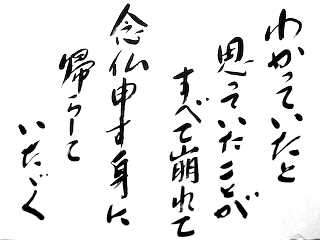 わかっていたと
思っていたことが
すべて崩れて
念仏申す身に
帰らして
いただく